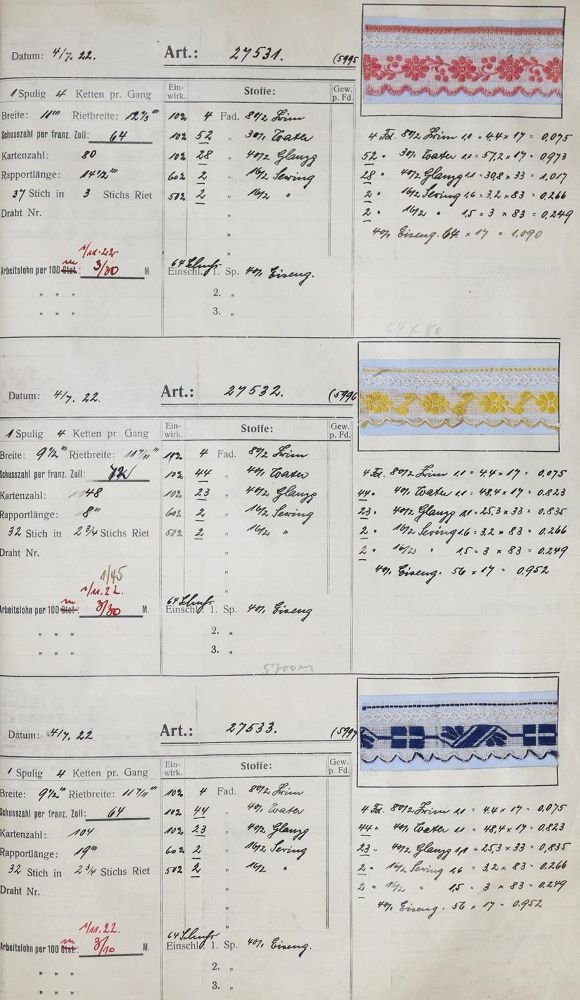 Datum: 4/7. 22. Art.: 27531. (5995
1 Spulig 4 Ketten pr. Gang Ein-wirk. Stoffe: Gew. p. Fd.
Breite: 11''' Rietbreite: 12 2/3''' 10% 4 Fad. 80/2
Schusszahl per franz. Zoll: 64 10% 52 " 30/1 Water
Kartenzahl: 80 10% 28 " 40/2 Glanzg
Rapportlänge: 14 1/2''' 60% 2 " 16/2
37 Stich in 3 Stichs Riet 50% 2 " 16/2 "
Draht Nr. "
"
Arbeitslohn per 100 M. 3/30 1/11. 22
64 Schuss
Einschl. 1. Sp. 40/1 Eiseng.
" " " 2. "
" " " 3. "
4 Fd. 80/2 1,1 = 4,4 × 17 = 0,075
52 " 30/1 Water 1,1 = 57,2 × 17 = 0,973
28 " 40/2 Glanzg 1,1 = 30,8 × 33 = 1,017
2 " 16/2 1,6 = 3,2 × 83 = 0,266
2 " 16/2 " 1,5 = 3 × 83 = 0,249
40/1 Eiseng. 64 × 17 = 1,090
64 × 80
Datum: 4/7. 22. Art.: 27532. (5996
1 Spulig 4 Ketten pr. Gang Ein-wirk. Stoffe: Gew. p. Fd.
Breite: 9 1/2''' Rietbreite: 10% 4 Fad. 80/2
Schusszahl per franz. Zoll: 72 10% 44 " 40/1 Water
Kartenzahl: 48 10% 23 " 40/2 Glanzg
Rapportlänge: 8''' 60% 2 " 16/2
32 Stich in 2 3/4 Stichs Riet 50% 2 " 16/2 "
Draht Nr. "
1/45
1/11. 22.
Arbeitslohn per 100 M. 3/30
64 Schuss
Einschl. 1. Sp. 40/1 Eiseng
" " " 2. "
" " " 3. "
4 Fd. 80/2 1,1 = 4,4 × 17 = 0,075
44 " 40/1 Water 1,1 = 48,4 × 17 = 0,823
23 " 40/2 Glanzg 1,1 = 25,3 × 33 = 0,835
2 " 16/2 1,6 = 3,2 × 83 = 0,266
2 " 16/2 " 1,5 = 3 × 83 = 0,249
40/1 Eiseng. 56 × 17 = 0,952
5700 m
Datum: 4/7. 22 Art.: 27533. (5997
1 Spulig 4 Ketten pr. Gang Ein-wirk. Stoffe: Gew. p. Fd.
Breite: 9 1/2''' Rietbreite: 10% 4 Fad. 80/2
Schusszahl per franz. Zoll: 64 10% 44 " 40/1 Water
Kartenzahl: 104 10% 23 " 40/2 Glanzg
Rapportlänge: 19''' 60% 2 " 16/2
32 Stich in 2 3/4 Stichs Riet 50% 2 " 16/2 "
Draht Nr. "
"
1/11. 22.
Arbeitslohn per 100 M. 3/10
64 Schuss
Einschl. 1. Sp. 40/1 Eiseng.
" " " 2. "
" " " 3. "
4 Fd. 80/2 1,1 = 4,4 × 17 = 0,075
44 " 40/1 Water 1,1 = 48,4 × 17 = 0,823
23 " 40/2 Glanzg 1,1 = 25,3 × 33 = 0,835
2 " 16/2 1,6 = 3,2 × 83 = 0,266
2 " 16/2 " 1,5 = 3 × 83 = 0,249
40/1 Eiseng. 56 × 17 = 0,952